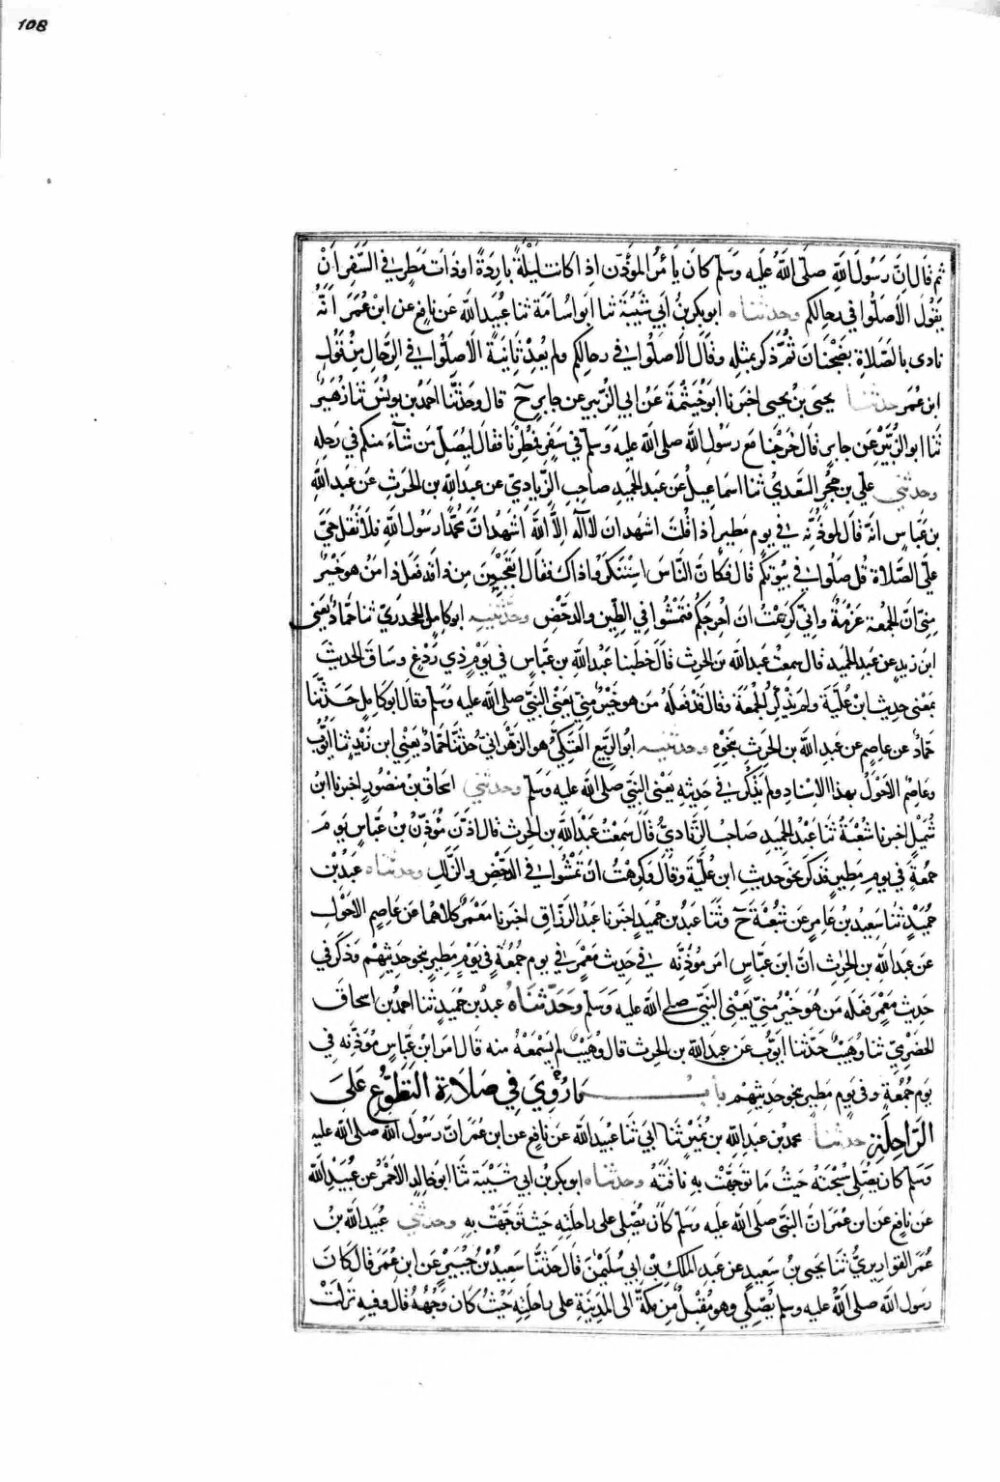 108
ثم قال ان رسول الله صلى الله عليه وسلم كان يأمر المؤذن اذا كانت ليلة باردة او ذات مطر في السفر ان
يقول الا صلوا في رحالكم وحدثناه ابو بكر بن ابي شيبة ثنا ابو اسامة ثنا عبيد الله عن نافع عن ابن عمر انه
نادى بالصلاة بضجنان ثم ذكر بمثله وقال الا صلوا في رحالكم ولم يعد ثانية الا صلوا في الرحال من قول
ابن عمر حدثنا يحيى بن يحيى اخبرنا ابو خيثمة عن ابي الزبير عن جابر ح قال وحدثنا احمد بن يونس ثنا زهير
ثنا ابو الزبير عن جابر قال خرجنا مع رسول الله صلى الله عليه وسلم في سفر فمطرنا فقال ليصل من شاء منكم في رحله
وحدثني علي بن حجر السعدي ثنا اسماعيل عن عبد الحميد صاحب الزيادي عن عبد الله بن الحرث عن عبد الله
بن عباس انه قال لمؤذنه في يوم مطير اذا قلت اشهد ان لا اله الا الله اشهد ان محمدا رسول الله فلا تقل حي
على الصلاة قل صلوا في بيوتكم قال فكان الناس استنكروا ذاك فقال اتعجبون من ذا قد فعل ذا من هو خير
مني ان الجمعة عزمة واني كرهت ان احرجكم فتمشوا في الطين والدحض وحدثنيه ابو كامل الجحدري ثنا حماد يعني
ابن زيد عن عبد الحميد قال سمعت عبد الله بن الحرث قال خطبنا عبد الله بن عباس في يوم ذي ردغ وساق الحديث
بمعنى حديث ابن علية ولم يذكر الجمعة وقال قد فعله من هو خير مني يعني النبي صلى الله عليه وسلم وقال ابو كامل حدثنا
حماد عن عاصم عن عبد الله بن الحرث بنحوه وحدثنيه ابو الربيع العتكي هو الزهراني حدثنا حماد يعني ابن زيد ثنا ايوب
وعاصم الاحول بهذا الاسناد ولم يذكر في حديثه يعني النبي صلى الله عليه وسلم وحدثني اسحاق بن منصور اخبرنا ابن
شميل اخبرنا شعبة ثنا عبد الحميد صاحب الزيادي قال سمعت عبد الله بن الحرث قال اذن مؤذن بن عباس يوم
جمعة في يوم مطير فذكر نحو حديث ابن علية وقال وكرهت ان تمشوا في الدحض والزلل وحدثناه عبد بن
حميد ثنا سعيد بن عامر عن شعبة ح وثنا عبد بن حميد اخبرنا عبد الرزاق اخبرنا معمر كلاهما عن عاصم الاحول
عن عبد الله بن الحرث ان ابن عباس امر مؤذنه في حديث معمر في يوم جمعة في يوم مطير بنحو حديثهم وذكر في
حديث معمر فعله من هو خير مني يعني النبي صلى الله عليه وسلم وحدثناه عبد بن حميد ثنا احمد بن اسحاق
الحضرمي ثنا وهيب حدثنا ايوب عن عبد الله بن الحرث قال وهيب لم يسمعه منه قال امر ابن عباس مؤذنه في
يوم جمعة وفي يوم مطير بنحو حديثهم باب ما روي في صلاة التطوع على
الراحلة حدثنا محمد بن عبد الله بن نمير ثنا ابي ثنا عبيد الله عن نافع عن ابن عمر ان رسول الله صلى الله عليه
وسلم كان يصلي سبحته حيث ما توجهت به ناقته وحدثناه ابو بكر بن ابي شيبة ثنا ابو خالد الاحمر عن عبيد الله
عن نافع عن ابن عمر ان النبي صلى الله عليه وسلم كان يصلي على راحلته حيث توجهت به وحدثني عبيد الله بن
عمر القواريري ثنا يحيى بن سعيد عن عبد الملك بن ابي سليمن قال حدثنا سعيد بن جبير عن ابن عمر قال كان
رسول الله صلى الله عليه وسلم يصلي وهو مقبل من مكة الى المدينة على راحلته حيث كان وجهه قال وفيه نزلت